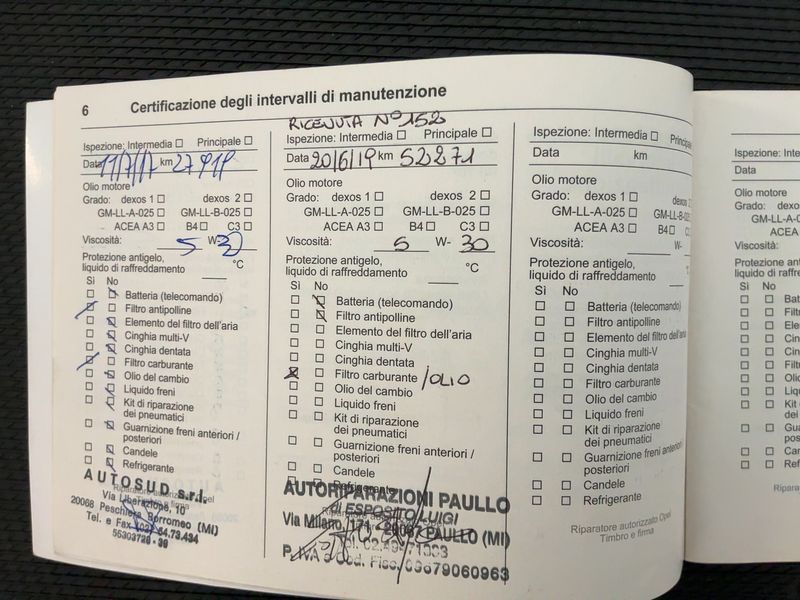 6 Certificazione degli intervalli di manutenzione
Ispezione: Intermedia Principale
Data 11/7/17 km 27919
Olio motore
Grado: dexos 1 dexos 2
GM-LL-A-025 GM-LL-B-025
ACEA A3 B4 C3
Viscosità: 5 W- 30
Protezione antigelo,
liquido di raffreddamento °C
Sì No
Batteria (telecomando)
Filtro antipolline
Elemento del filtro dell'aria
Cinghia multi-V
Cinghia dentata
Filtro carburante
Olio del cambio
Liquido freni
Kit di riparazione
dei pneumatici
Guarnizione freni anteriori /
posteriori
Candele
Refrigerante
AUTOSUD s.r.l.
Riparatore autorizzato Opel
Timbro e firma
Via Liberazione, 10
20068 Peschiera Borromeo (MI)
Tel. e Fax
RICEVUTA N° 152
Ispezione: Intermedia Principale
Data 20/6/19 km 52271
Olio motore
Grado: dexos 1 dexos 2
GM-LL-A-025 GM-LL-B-025
ACEA A3 B4 C3
Viscosità: 5 W- 30
Protezione antigelo,
liquido di raffreddamento °C
Sì No
Batteria (telecomando)
Filtro antipolline
Elemento del filtro dell'aria
Cinghia multi-V
Cinghia dentata
Filtro carburante /OLIO
Olio del cambio
Liquido freni
Kit di riparazione
dei pneumatici
Guarnizione freni anteriori /
posteriori
Candele
Refrigerante
AUTORIPARAZIONI PAULLO
di ESPOSITO LUIGI
Via Milano, 171 20067 PAULLO (MI)
P. IVA e Cod. Fisc. 09679060963
Ispezione: Intermedia Principale
Data km
Olio motore
Grado: dexos 1 dexos 2
GM-LL-A-025 GM-LL-B-025
ACEA A3 B4
Viscosità: W-
Protezione antigelo,
liquido di raffreddamento
Sì No
Batteria (telecomando)
Filtro antipolline
Elemento del filtro dell'aria
Cinghia multi-V
Cinghia dentata
Filtro carburante
Olio del cambio
Liquido freni
Kit di riparazione
dei pneumatici
Guarnizione freni anteriori
posteriori
Candele
Refrigerante
Riparatore autorizzato Opel
Timbro e firma
Ispezione:
Data
Olio motore
Grado:
GM-LL-A-0
ACEA
Viscosità:
Protezione antigelo,
liquido di raffredd
Sì No